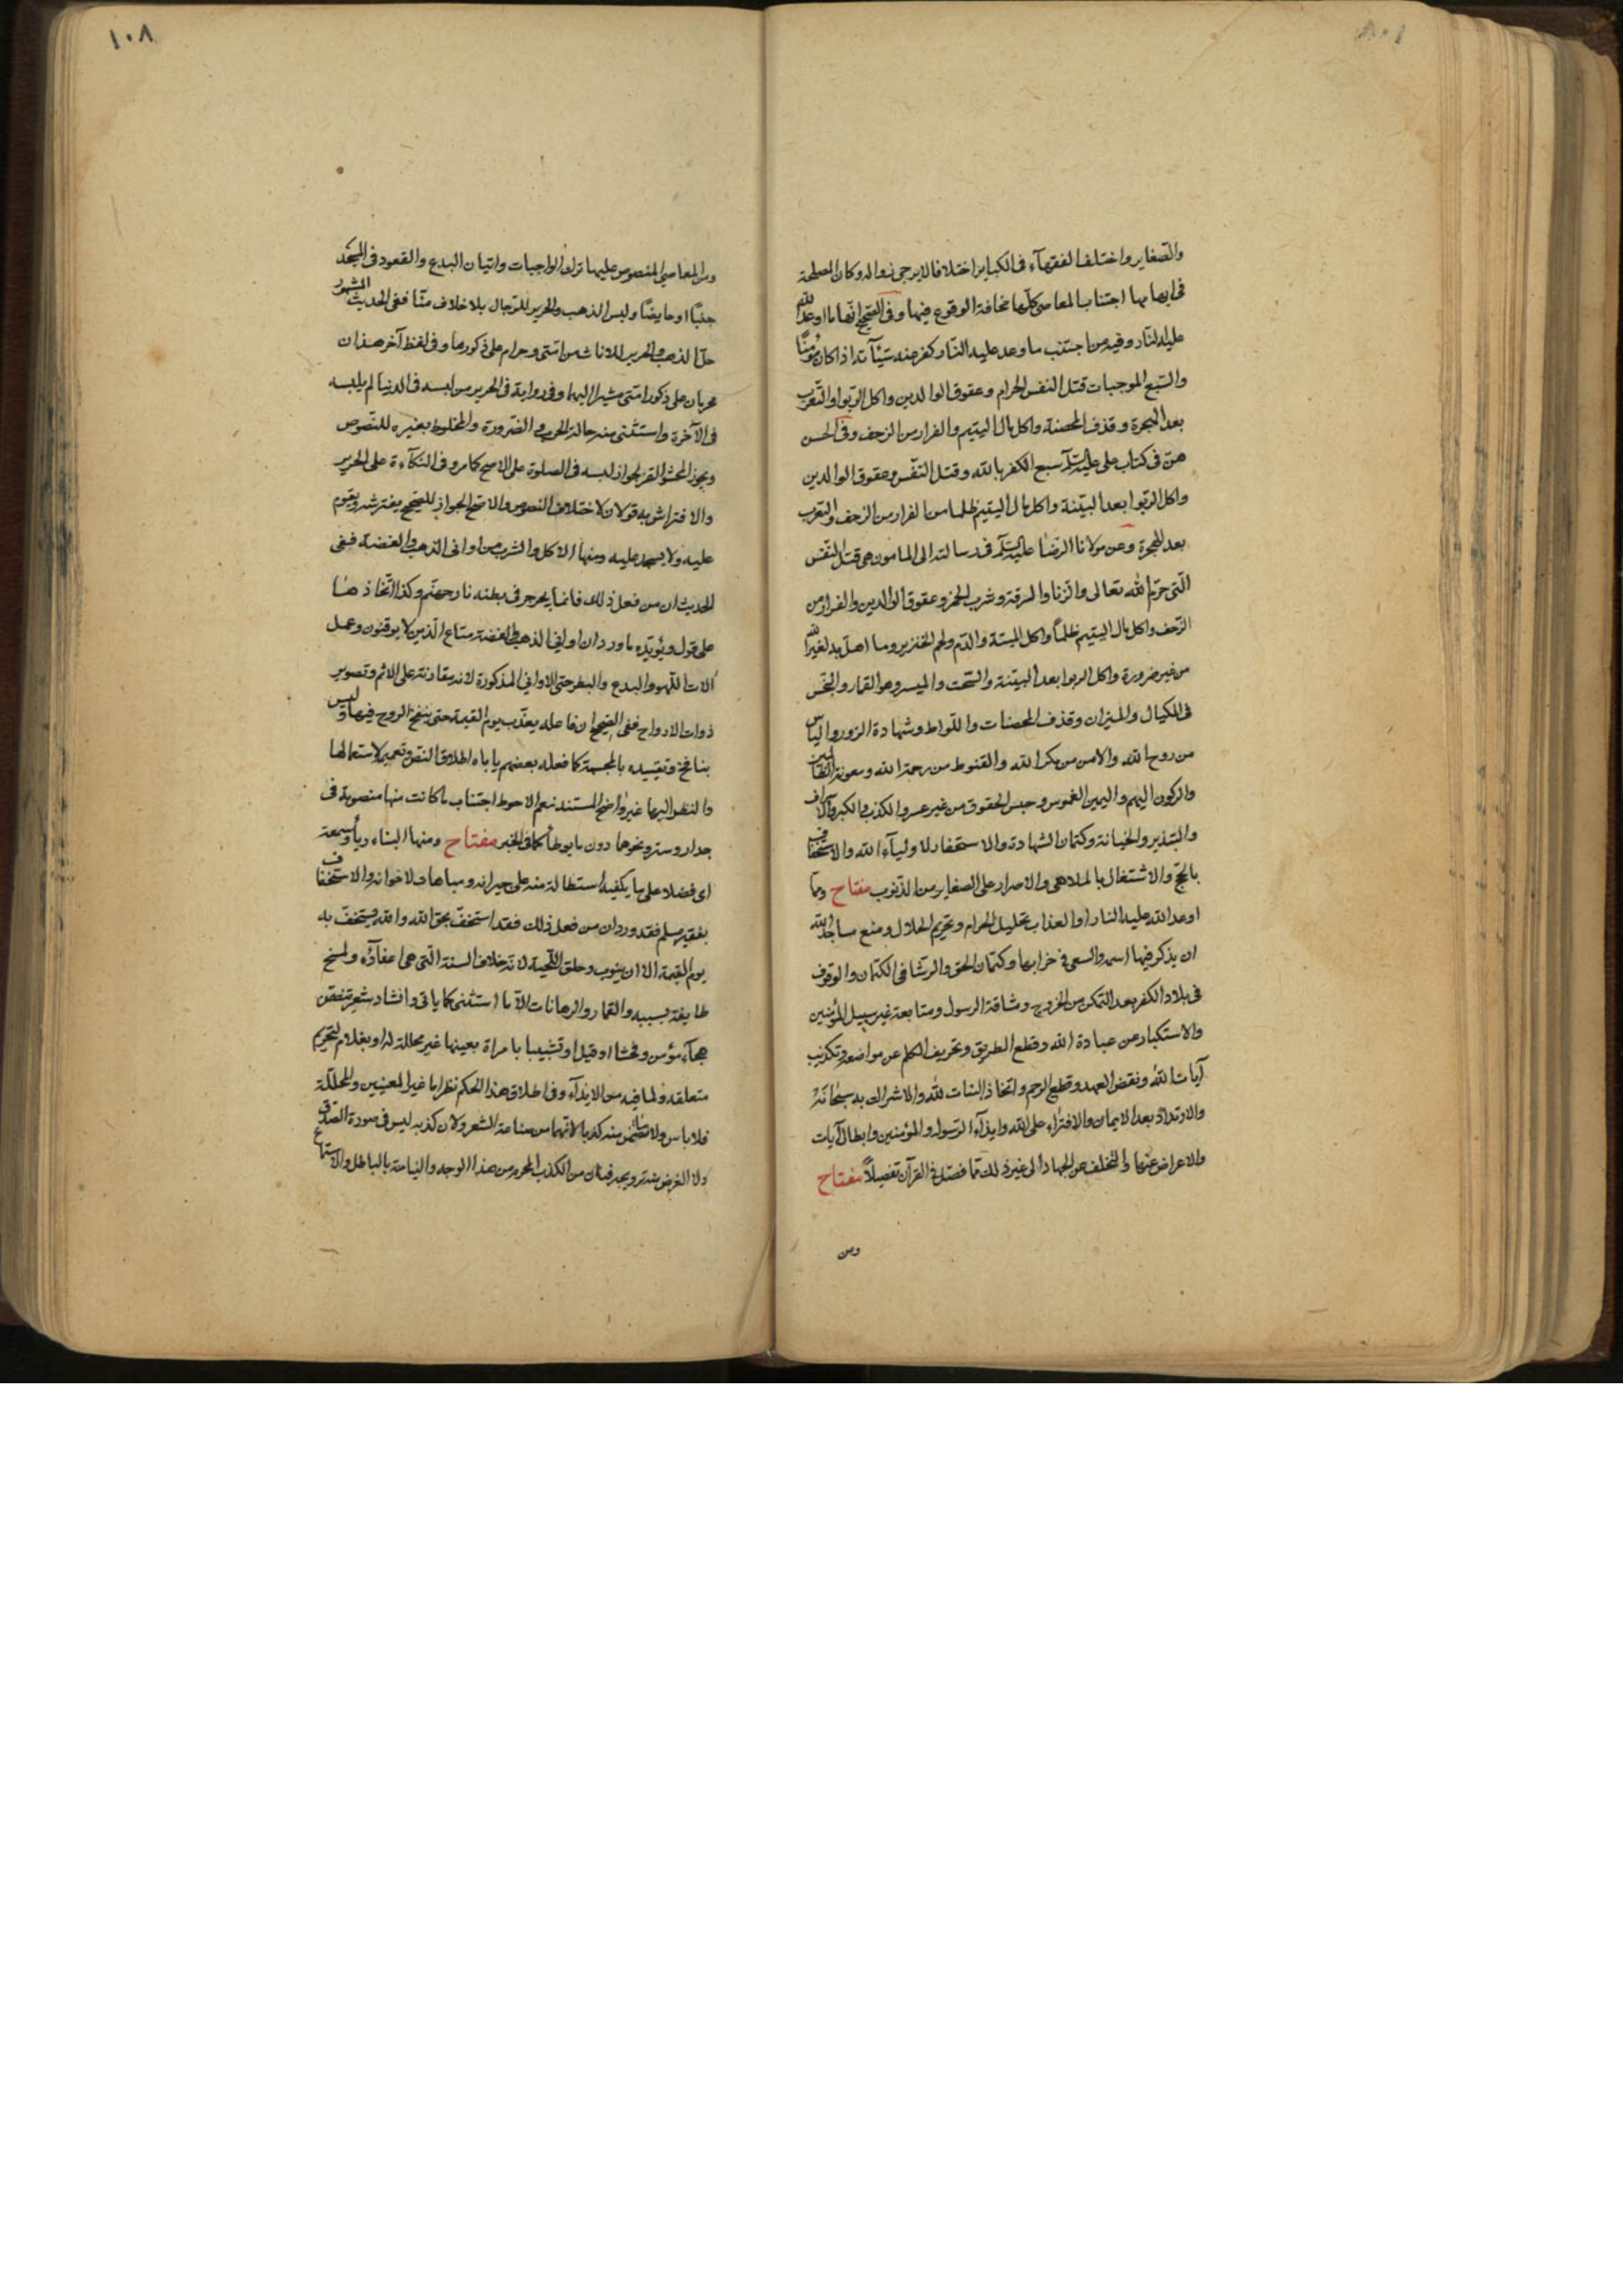 والصغاير واختلف الفقهآء فى الكباير اختلافا لا يرجى زواله وكان المصلحة
فى ابهامها اجتناب المعاصى كلها مخافة الوقوع فيها وفى الصحيح انها ما اوعد الله
عليه النار وفيه من اجتنب ما وعد عليه النار كفر عنه سيئآته اذا كان مؤمنًا
والسبع الموجبات قتل النفس الحرام وعقوق الوالدين واكل الربوا والتعرب
بعد الهجرة وقذف المحصنة واكل مال اليتيم والفرار من الزحف وفى الحسن
هن فى كتاب على عليه السلم سبع الكفر بالله وقتل النفس وعقوق الوالدين
واكل الربوا بعد البينة واكل مال اليتيم ظلما من الفرار من الزحف والتعرب
بعد الهجرة وعن مولانا الرضا عليه السلم فى رسالته الى المامون هى قتل النفس
التى حرّم الله تعالى والزنا والسرقة وشرب الخمر وعقوق الوالدين والفرار من
الزحف واكل مال اليتيم ظلماً واكل الميتة والدم ولحم الخنزير وما اهل به لغير الله
من غير ضرورة واكل الربوا بعد البينة والسحت والميسر وهو القمار والبخس
فى المكيال والميزان وقذف المحصنات واللواط وشهادة الزور والياس
من روح الله والامن من مكر الله والقنوط من رحمة الله ومعونة الظالمين
والركون اليهم واليمين الغموس وحبس الحقوق من غير عسر والكذب والكبر والاسراف
والتبذير والخيانة وكتمان الشهادة والاستحفار لاوليآء الله والاستخفاف
بالحج والاشتغال بالملاهى والاصرار على الصغاير من الذنوب مفتاح ومما
اوعد الله عليه النار او العذاب تحليل الحرام وتحريم الحلال ومنع مساجد الله
ان يذكر فيها اسمه والسعى فى خرابها وكتمان الحق والرشا فى الكتمان والوقوف
فى بلاد الكفر بعد التمكن من الخروج ومشاقة الرسول ومتابعة غير سبيل المؤمنين
والاستكبار عن عبادة الله وقطع الطريق وتحريف الكلم عن مواضعه وتكذيب
آيات الله ونقض العهد وقطع الرحم واتخاذ البنات لله والاشراك به سبحانه
والارتداد بعد الايمان والافتراء على الله وايذآء الرسول والمؤمنين وابطال آيات
والاعراض عنها والتخلف عن الجهاد الى غير ذلك مما فصل فى القرآن تفصيلاً مفتاح
ومن
١٠٨
ومن المعاصى المنصوص عليها ترك الواجبات واتيان البدع والقعود فى المسجد
جنبًا او حايضًا ولبس الذهب والحرير للرجال بلا خلاف منّا ففى الحديث المشهور
حل الذهب والحرير للاناث من امتى وحرام على ذكورها وفى لفظ آخر هذان
محرمان على ذكور امتى مشيرا اليهما وفى رواية فى الحرير من لبسه فى الدنيا لم يلبسه
فى الآخرة واستثنى منه حالة الحرب والضرورة والمخلوط بغيره للنصوص
ويجوز المحشو القز لجواز لبسه فى الصلوة على الاصح كما مر وفى التكآءة على الحرير
والافتراش به قولان لاختلاف النصوص والاصح الجواز للصحيح يفترشه ويقوم
عليه ولا يسجد عليه ومنها الاكل والشرب من اوانى الذهب والفضة ففى
الحديث ان من فعل ذلك فانما يجرجر فى بطنه نار جهنم وكذا اتخاذها
على قول ويؤيّده ما ورد ان اوانى الذهب والفضة متاع الذين لا يوقنون وعمل
آلات اللهو والبدع والبطر حتى الاوانى المذكورة لانه مقاونة على الاثم وتصوير
ذوات الارواح ففى الصحيح ان فاعله يعذب يوم القيمة حتى ينفخ الروح فيها وليس
بنافخ وتقييده بالمجسمة كما فعله بعضهم ياباه اطلاق النص وتعميم لاستعمالها
والنظر اليها غير واضح المستند نعم الاحوط اجتناب ما كانت منها منصوبة فى
جدار وستر ونحوها دون ما يوطأ كما فى الخبر مفتاح ومنها البناء رياء وسمعة
اى فضلا على ما يكفيه استطالة منه على جيرانه ومباهاة لاخوانه والاستخفاف
بفقير مسلم فقد ورد ان من فعل ذلك فقد استخف بحق الله والله يستخف به
يوم القيمة الا ان يتوب وحلق اللحية لانه خلاف السنة التى هى اعفآؤه ولمسخ
طايفة بسببه والقمار والرهانات الا ما استثنى كما ياتى وانشاد شعر تضمن
هجآء مؤمن وفحشا او قيل او تشبيبا بامراة بعينها غير محللة له او بغلام لتحريم
متعلقه ولما فيه من الايذآء وفى اطلاق هذا الحكم نظر اما غير المعينين والمحللة
فلا باس ولا تضمن منه كذبا لانهما من صناعة الشعر ولان كذبه ليس فى صورة الصدق
ولا الغرض منه ترويجه فبان من الكذب المحرم من هذا الوجه والنياحة بالباطل والاستماع